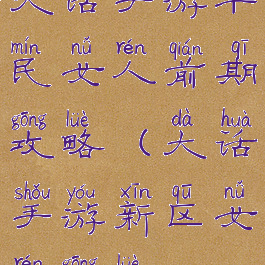 大 话 手 游 平
mín nǚ rén qián qī
民 女 人 前 期
gōng lüè dà huà
攻 略 ( 大 话
shǒu yóu xīn qū nǚ
手 游 新 区 女
rén gōng lüè